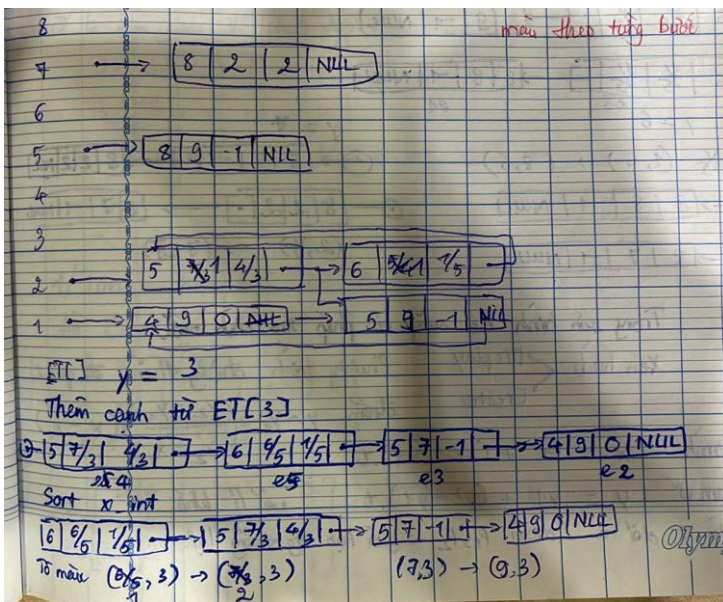 8
màu theo từng bước
7 → 8 | 2 | 2 | NUL
6
5 → 8 | 9 | -1 | NUL
4
3
2 → 5 | 1 | 4/3 → 6 | 1 | 1/5
1 → 4 | 9 | 0 | NUL → 5 | 9 | -1 | NUL
ET[] y = 3
Thêm cạnh từ ET[3]
→ 5 | 7/3 | 4/3 → 6 | 6/5 | 1/5 → 5 | 7 | -1 → 4 | 9 | 0 | NUL
e4 e5 e3 e2
Sort x_int
6 | 6/5 | 1/5 → 5 | 7/3 | 4/3 → 5 | 7 | -1 → 4 | 9 | 0 | NUL
Tô màu (6/5, 3) → (7/3, 3) (7,3) → (9,3)
1 2
Olym